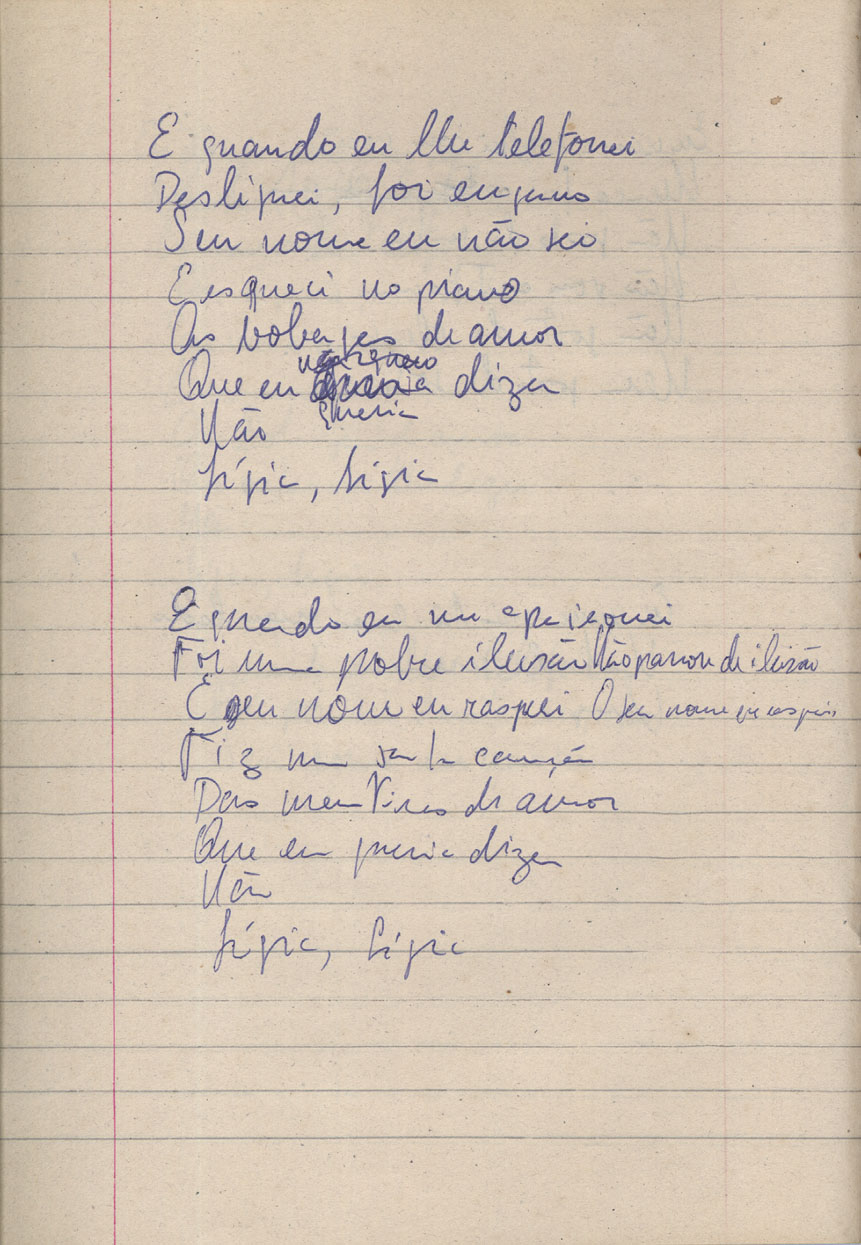 E quando eu lhe telefonei
Desliguei, foi engano
Seu nome eu não sei
E esqueci no piano
As bobagens de amor
não quero
Que eu queria dizer
queria
Não
Lígia, Lígia
E quando eu me apaixonei
Foi uma pobre ilusão Não passou de ilusão
E seu nome eu raspei O seu nome eu raspei
Fiz um samba canção
Das mentiras de amor
Que eu queria dizer
Não
Lígia, Lígia